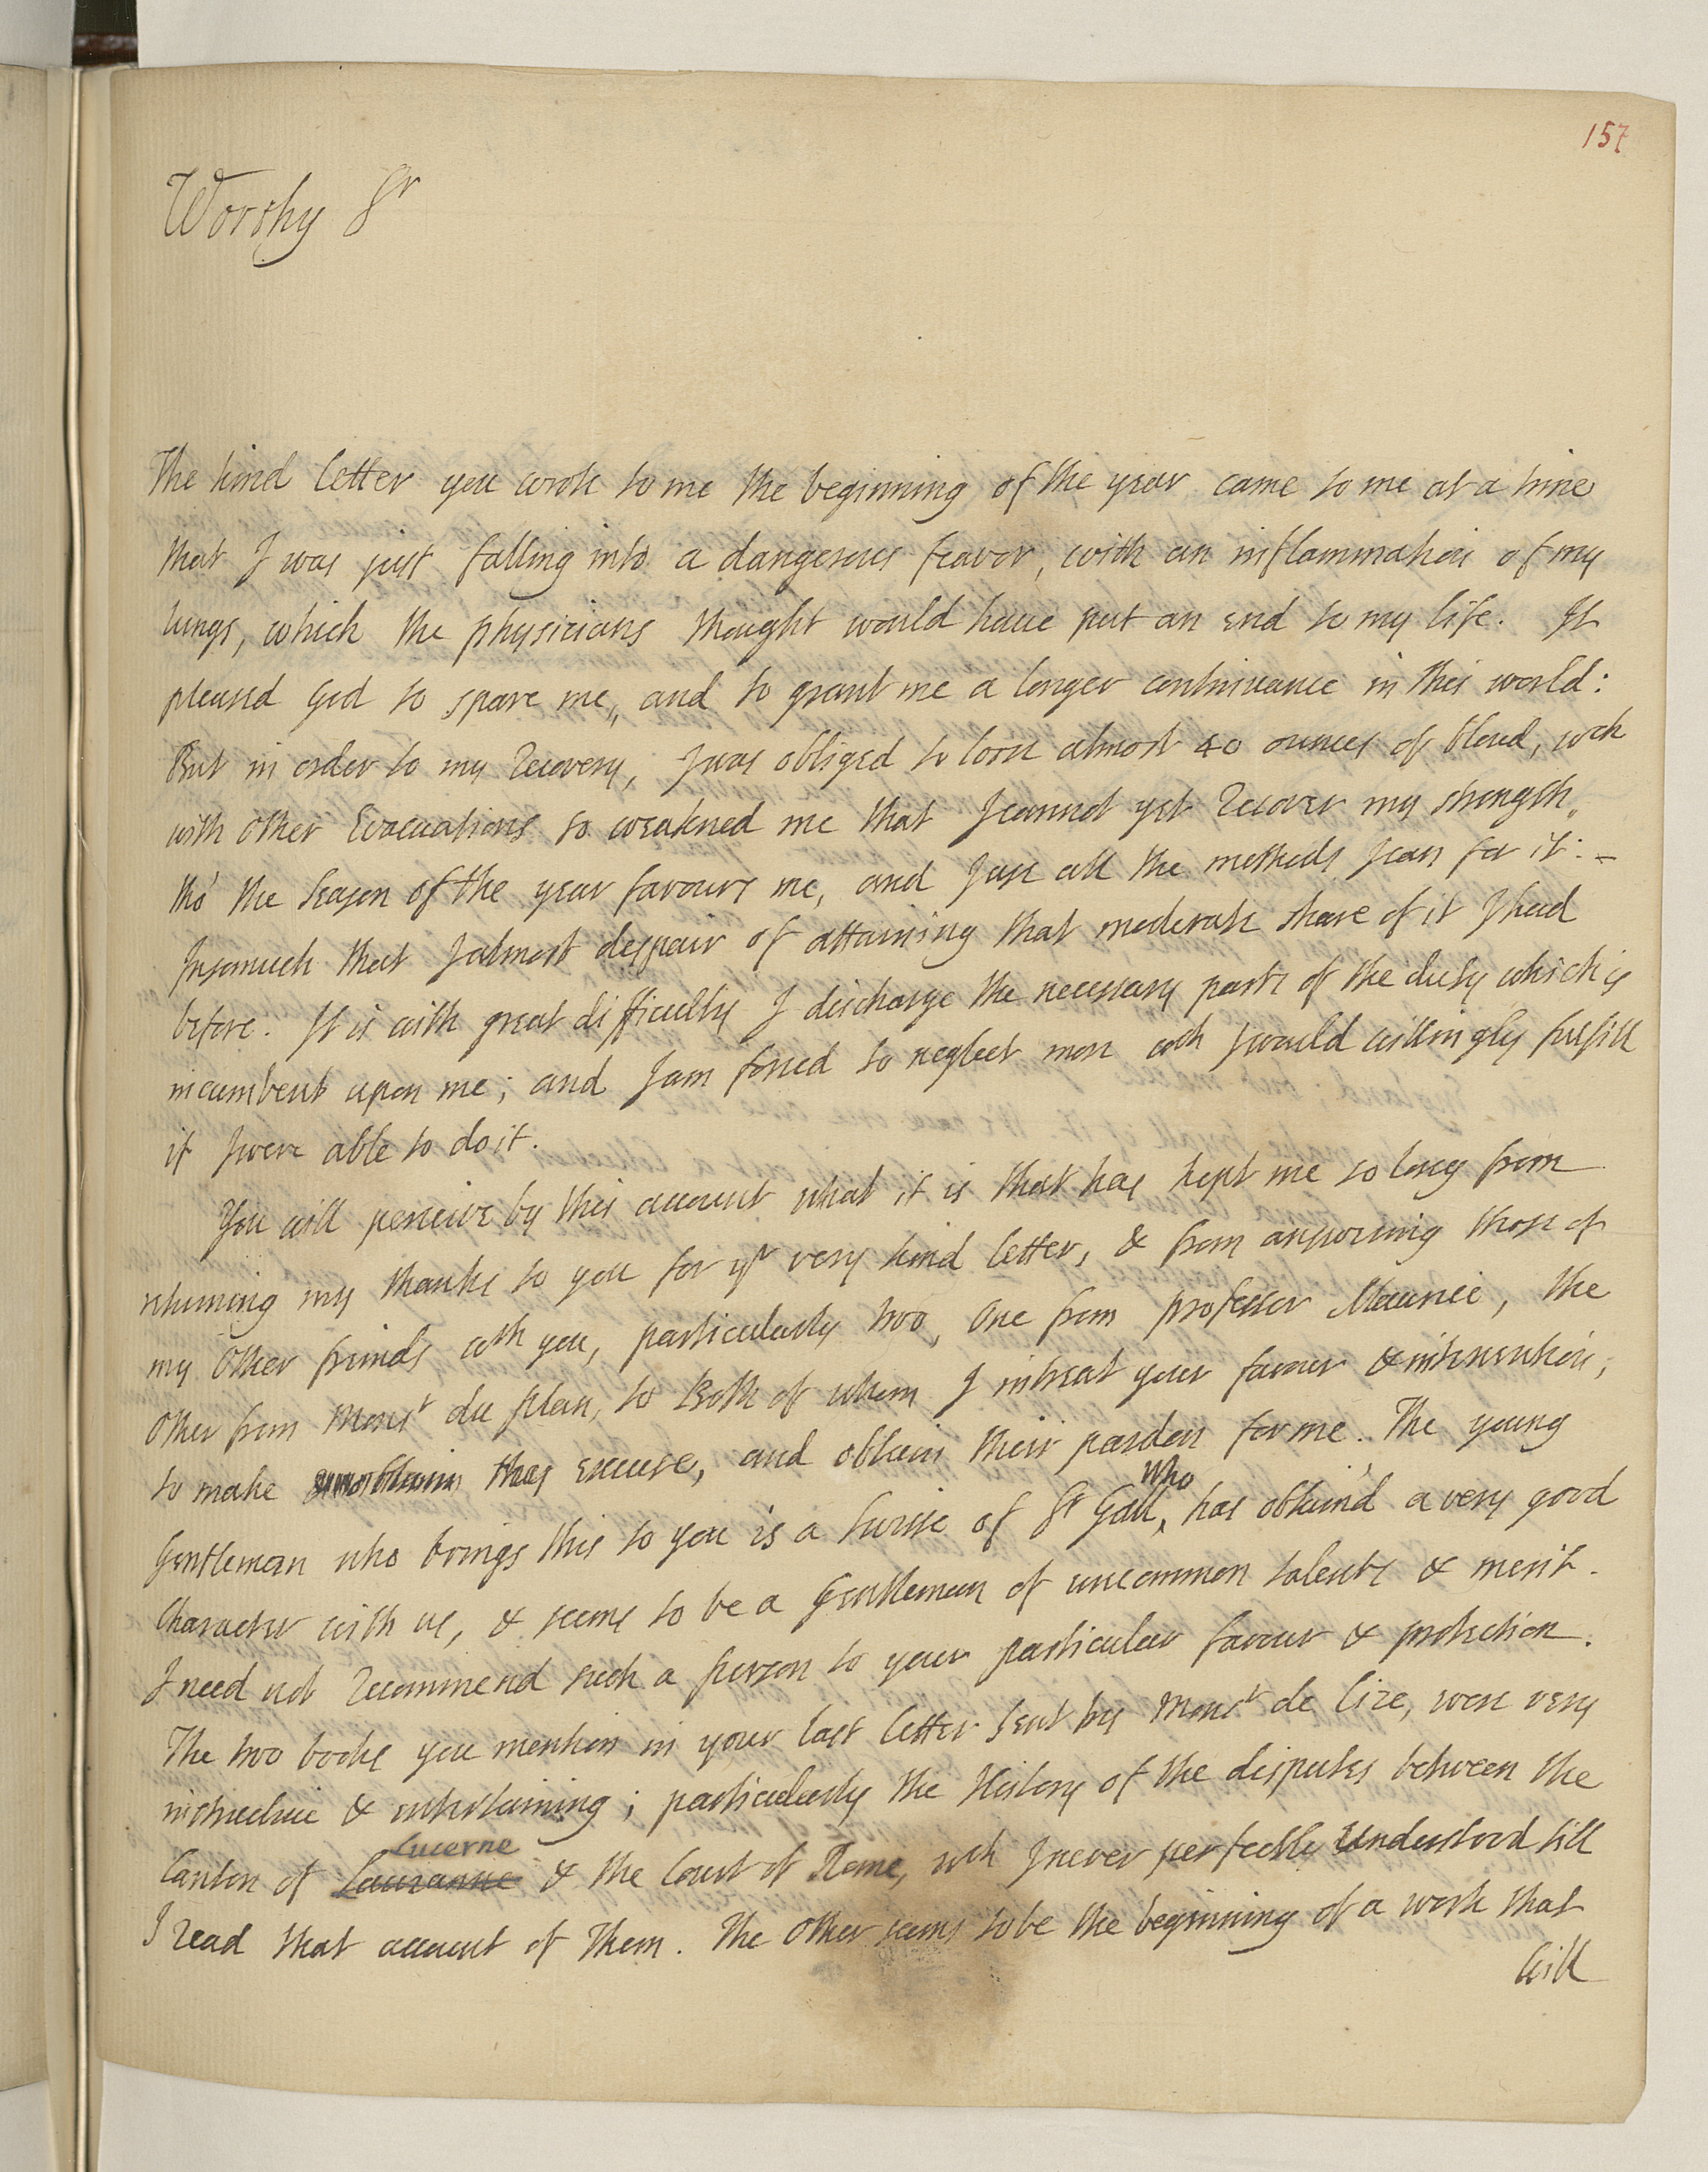 157
Worthy Sr
The kind letter you wrote to me the beginning of the year came to me at a time
that I was just falling into a dangerous feavor, with an inflammation of my
lungs, which the physicians thought would have put an end to my life. It
pleased God to spare me, and to grant me a longer continuance in this world:
But in order to my Recovery, I was obliged to loose almost 40 ounces of bloud, wch
with other Evacuations so weakned me that I cannot yet Recover my strength,
tho' the Season of the year favours me, and I use all the methods I can for it: -
Insomuch that I almost despair of attaining that moderate share of it I had
before. It is with great difficulty I discharge the necessary parts of the duty which is
incumbent upon me; and I am forced to neglect more wch I would willingly fulfill
if I were able to do it.
You will perceive by this account what it is that has kept me so long from
returning my thanks to you for yr very kind letter, & from answering those of
my other friends wth you, particularly two, one from professor Maurice, the
other from Monsr du plan, to Both of whom I intreat your favour & intercession,
to make this excuse, and obtain their pardon for me. The young
Gentleman who brings this to you is a Swisse of St Gall, who has obtain'd a very good
Character with us, & seems to be a Gentleman of uncommon talents & merit.
I need not Recommend such a person to your particular favour & protection.
The two books you mention in your last letter sent by Monsr de Lize, were very
instructive & entertaining; particularly the History of the disputes between the
Canton of Lauzanne Lucerne & the Court of Rome, wch I never perfectly Understood till
I read that account of them. The other seems to be the beginning of a work that
will